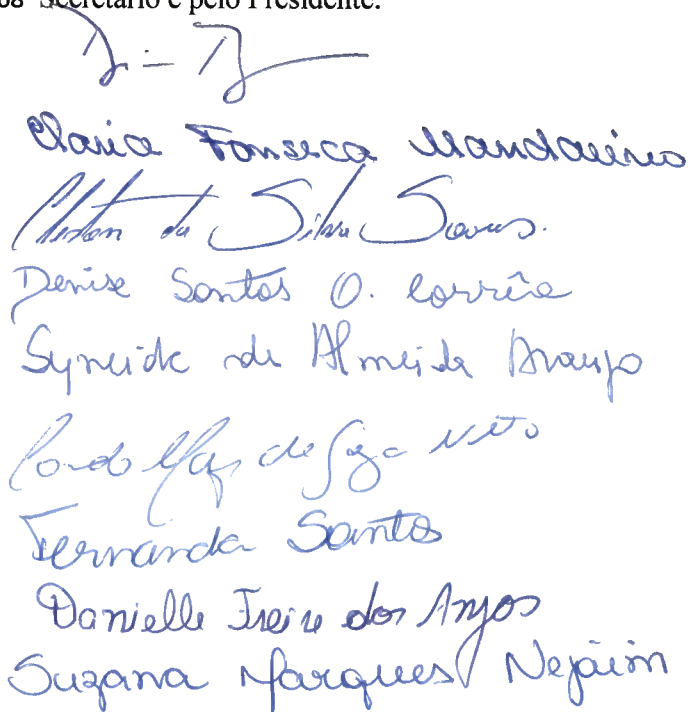 Secretário e pelo Presidente.
Fonseca Mandarino
da Silva
Denise Santos O. Corrêa
Syneide de Almeida Araujo
de Neto
Fernanda Santos
Danielle Freire dos Anjos
Suzana Marques Nejáim